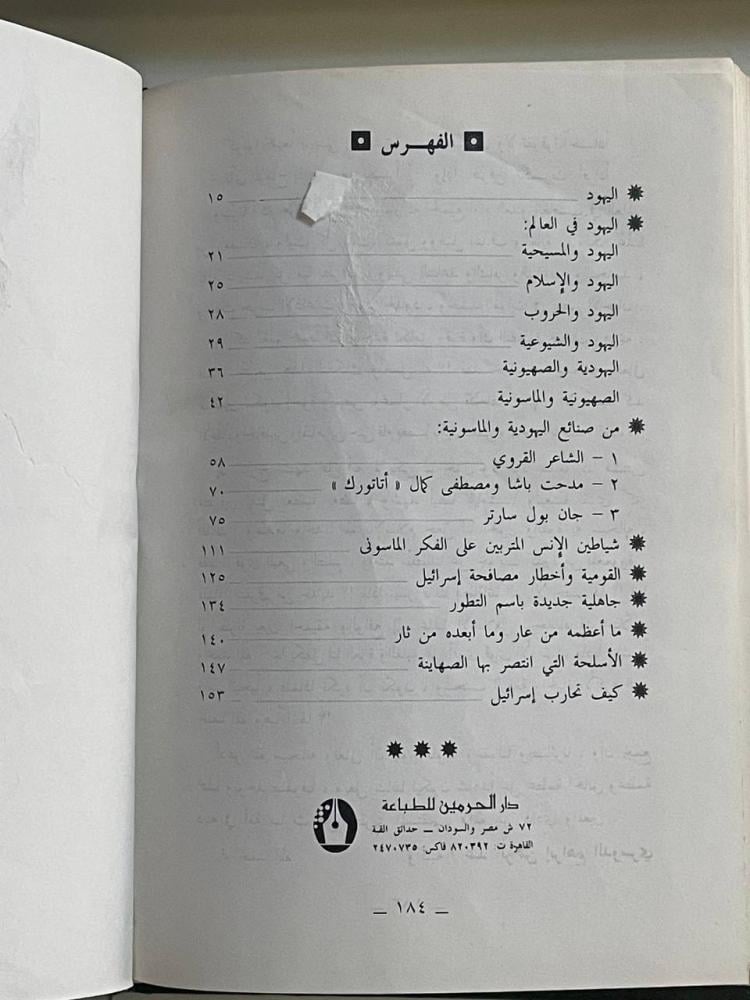 الفهـــرس
اليهود ١٥
اليهود في العالم:
اليهود والمسيحية ٢١
اليهود والإسلام ٢٥
اليهود والحروب ٢٨
اليهود والشيوعية ٢٩
اليهودية والصهيونية ٣٦
الصهيونية والماسونية ٤٢
من صنائع اليهودية والماسونية:
١ – الشاعر القروي ٥٨
٢ – مدحت باشا ومصطفى كمال « أتاتورك » ٧٠
٣ – جان بول سارتر ٧٥
شياطين الإنس المتربين على الفكر الماسونى ١١١
القومية وأخطار مصافحة إسرائيل ١٢٥
جاهلية جديدة باسم التطور ١٣٤
ما أعظمه من عار وما أبعده من ثار ١٤٠
الأسلحة التي انتصر بها الصهاينة ١٤٧
كيف تحارب إسرائيل ١٥٣
دار الحرمين للطباعة
٧٢ ش مصر والسودان ــ حدائق القبة
القاهرة ت: ٨٢٠٣٩٢ فاكس: ٢٤٧٠٧٣٥
ــ ١٨٤ ــ